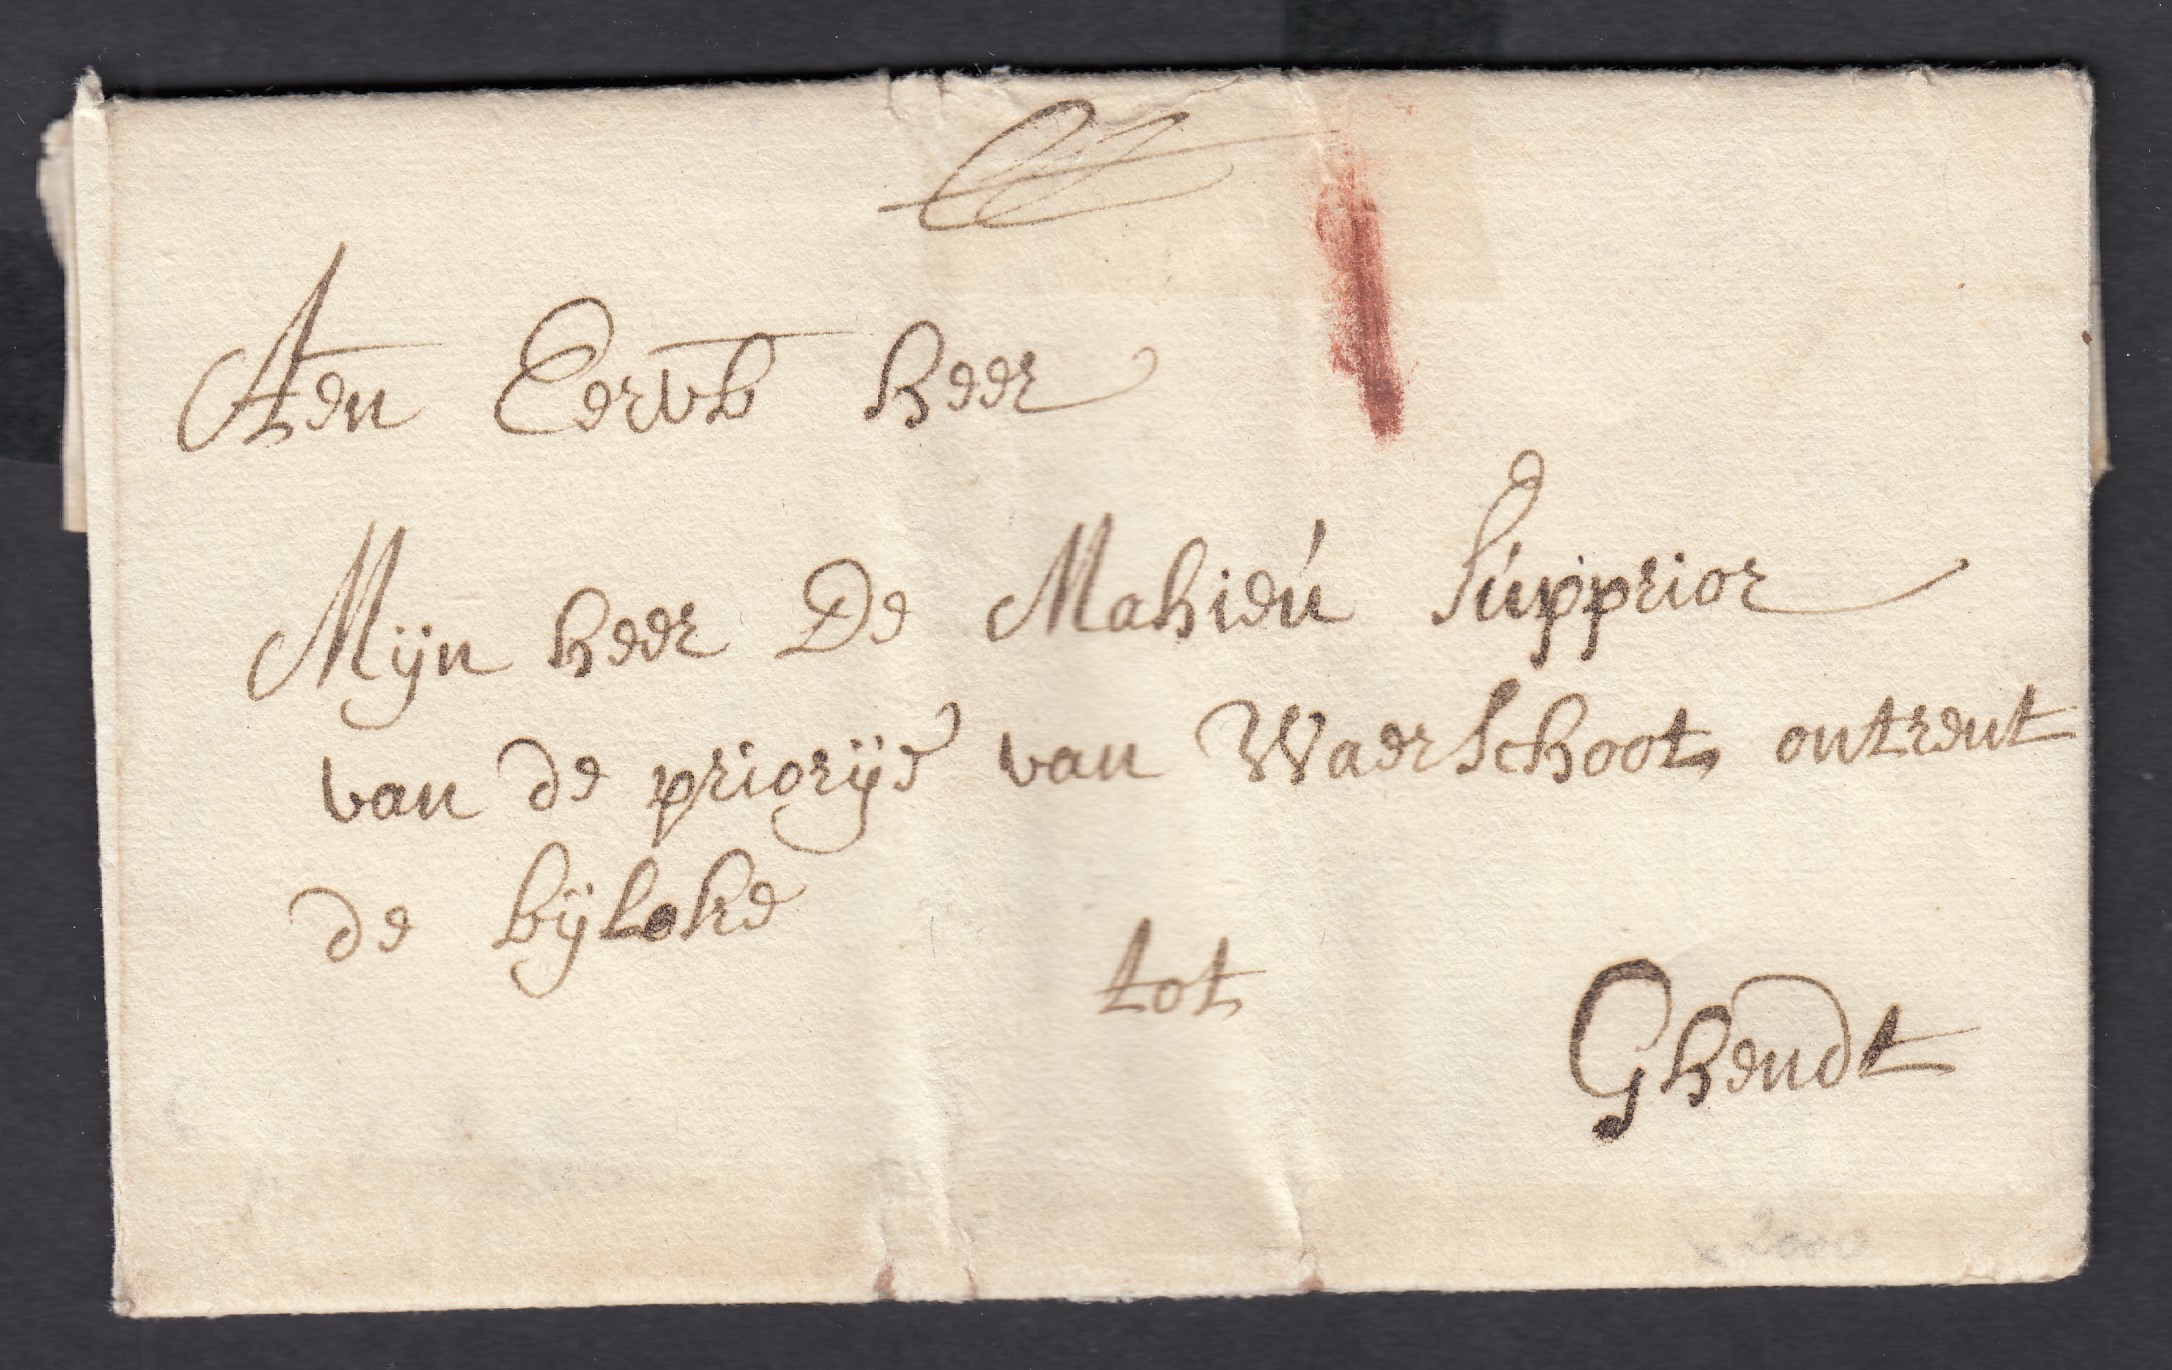 Aen Eerwb heer
Mijn heer De Mahieú Súpprior
van de priorije van Waerschoot ontrent
de bijloke
tot
Ghendt
2000